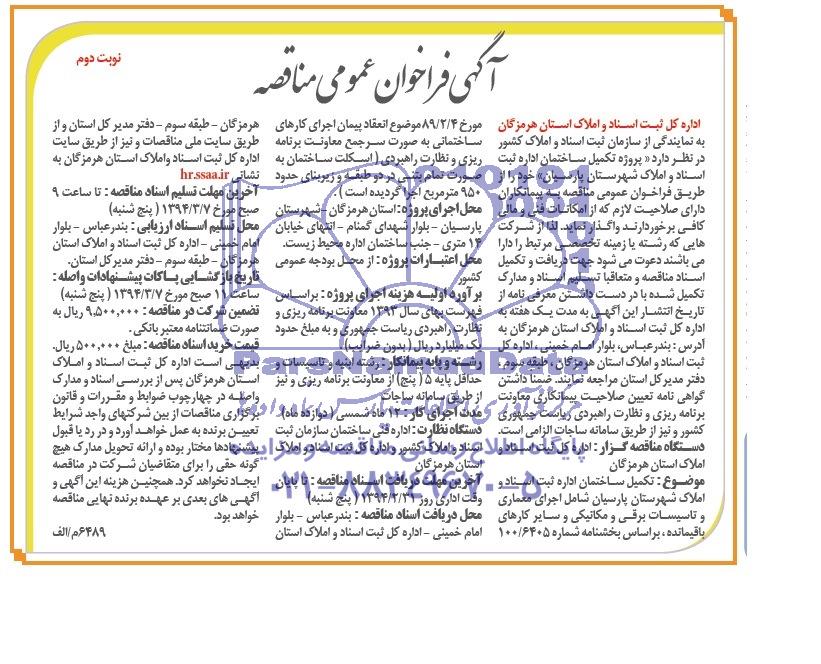 آگهی فراخوان عمومی مناقصه
نوبت دوم
اداره کل ثبت اسناد و املاک استان هرمزگان
به نمایندگی از سازمان ثبت اسناد و املاک کشور
در نظر دارد « پروژه تکمیل ساختمان اداره ثبت
اسناد و املاک شهرستان پارسیان» خود را از
طریق فراخوان عمومی مناقصه به پیمانکاران
دارای صلاحیت لازم که از امکانات فنی و مالی
کافی برخوردارند واگذار نماید. لذا از شرکت
هایی که رشته یا زمینه تخصصی مرتبط را دارا
می باشند دعوت می شود جهت دریافت و تکمیل
اسناد مناقصه و متعاقبا تسلیم اسناد و مدارک
تکمیل شده با در دست داشتن معرفی نامه از
تاریخ انتشار این آگهی به مدت یک هفته به
اداره کل ثبت اسناد و املاک استان هرمزگان به
آدرس : بندرعباس، بلوار امام خمینی ، اداره کل
ثبت اسناد و املاک استان هرمزگان ، طبقه سوم ،
دفتر مدیرکل استان مراجعه نمایند. ضمنا داشتن
گواهی نامه تعیین صلاحیت پیمانکاری معاونت
برنامه ریزی و نظارت راهبردی ریاست جمهوری
کشور و نیز از طریق سامانه ساجات الزامی است.
دستگاه مناقصه گزار : اداره کل ثبت اسناد و
املاک استان هرمزگان
موضوع : تکمیل ساختمان اداره ثبت اسناد و
املاک شهرستان پارسیان شامل اجرای معماری
و تاسیسات برقی و مکانیکی و سایر کارهای
باقیمانده ، براساس بخشنامه شماره ۱۰۰/۶۴۰۵
مورخ ۸۹/۲/۴ موضوع انعقاد پیمان اجرای کارهای
ساختمانی به صورت سرجمع معاونت برنامه
ریزی و نظارت راهبردی ( اسکلت ساختمان به
صورت تمام بتنی در دو طبقه و زیربنای حدود
۹۵۰ مترمربع اجرا گردیده است ) .
محل اجرای پروژه : استان هرمزگان - شهرستان
پارسیان - بلوار شهدای گمنام - انتهای خیابان
۱۴ متری - جنب ساختمان اداره محیط زیست.
محل اعتبارات پروژه : از محل بودجه عمومی
کشور
برآورد اولیه هزینه اجرای پروژه : براساس
فهرست بهای سال ۱۳۹۳ معاونت برنامه ریزی و
نظارت راهبردی ریاست جمهوری و به مبلغ حدود
یک میلیارد ریال ( بدون ضرایب)
رشته و پایه پیمانکار : رشته ابنیه و تاسیسات و
حداقل پایه ۵ ( پنج) از معاونت برنامه ریزی و نیز
از طریق سامانه ساجات
مدت اجرای کار : ۱۲ ماه شمسی ( دوازده ماه).
دستگاه نظارت : اداره فنی ساختمان سازمان ثبت
اسناد و املاک کشور و اداره کل ثبت اسناد و املاک
استان هرمزگان
آخرین مهلت دریافت اسناد مناقصه : تا پایان
وقت اداری روز ۱۳۹۴/۲/۳۱ ( پنج شنبه)
محل دریافت اسناد مناقصه : بندرعباس - بلوار
امام خمینی - اداره کل ثبت اسناد و املاک استان
هرمزگان - طبقه سوم - دفتر مدیر کل استان و از
طریق سایت ملی مناقصات و نیز از طریق سایت
اداره کل ثبت اسناد واملاک استان هرمزگان به
نشانی hr.ssaa.ir
آخرین مهلت تسلیم اسناد مناقصه : تا ساعت ۹
صبح مورخ ۱۳۹۴/۳/۷ ( پنج شنبه)
محل تسلیم اسناد ارزیابی : بندرعباس - بلوار
امام خمینی - اداره کل ثبت اسناد و املاک استان
هرمزگان - طبقه سوم - دفتر مدیرکل استان.
تاریخ بازگشایی پاکات پیشنهادات واصله :
ساعت ۱۱ صبح مورخ ۱۳۹۴/۳/۷ ( پنج شنبه)
تضمین شرکت در مناقصه : ۹,۵۰۰,۰۰۰ ریال به
صورت ضمانتنامه معتبر بانکی .
قیمت خرید اسناد مناقصه : مبلغ ۵۰۰,۰۰۰ ریال.
بدیهی است اداره کل ثبت اسناد و املاک
استان هرمزگان پس از بررسی اسناد و مدارک
واصله در چهارچوب ضوابط و مقررات و قانون
برگزاری مناقصات از بین شرکتهای واجد شرایط
تعیین برنده به عمل خواهد آورد و در رد یا قبول
پیشنهادها مختار بوده و ارائه تحویل مدارک هیچ
گونه حقی را برای متقاضیان شرکت در مناقصه
ایجاد نخواهد کرد. همچنین هزینه این آگهی و
آگهی های بعدی بر عهده برنده نهایی مناقصه
خواهد بود.
۶۴۸۹/م/الف
ParsNamadData
پایگاه اطلاع رسانی مناقصه و مزایده
۰۲۱-۸۸۳۴۹۶۷۰-۵